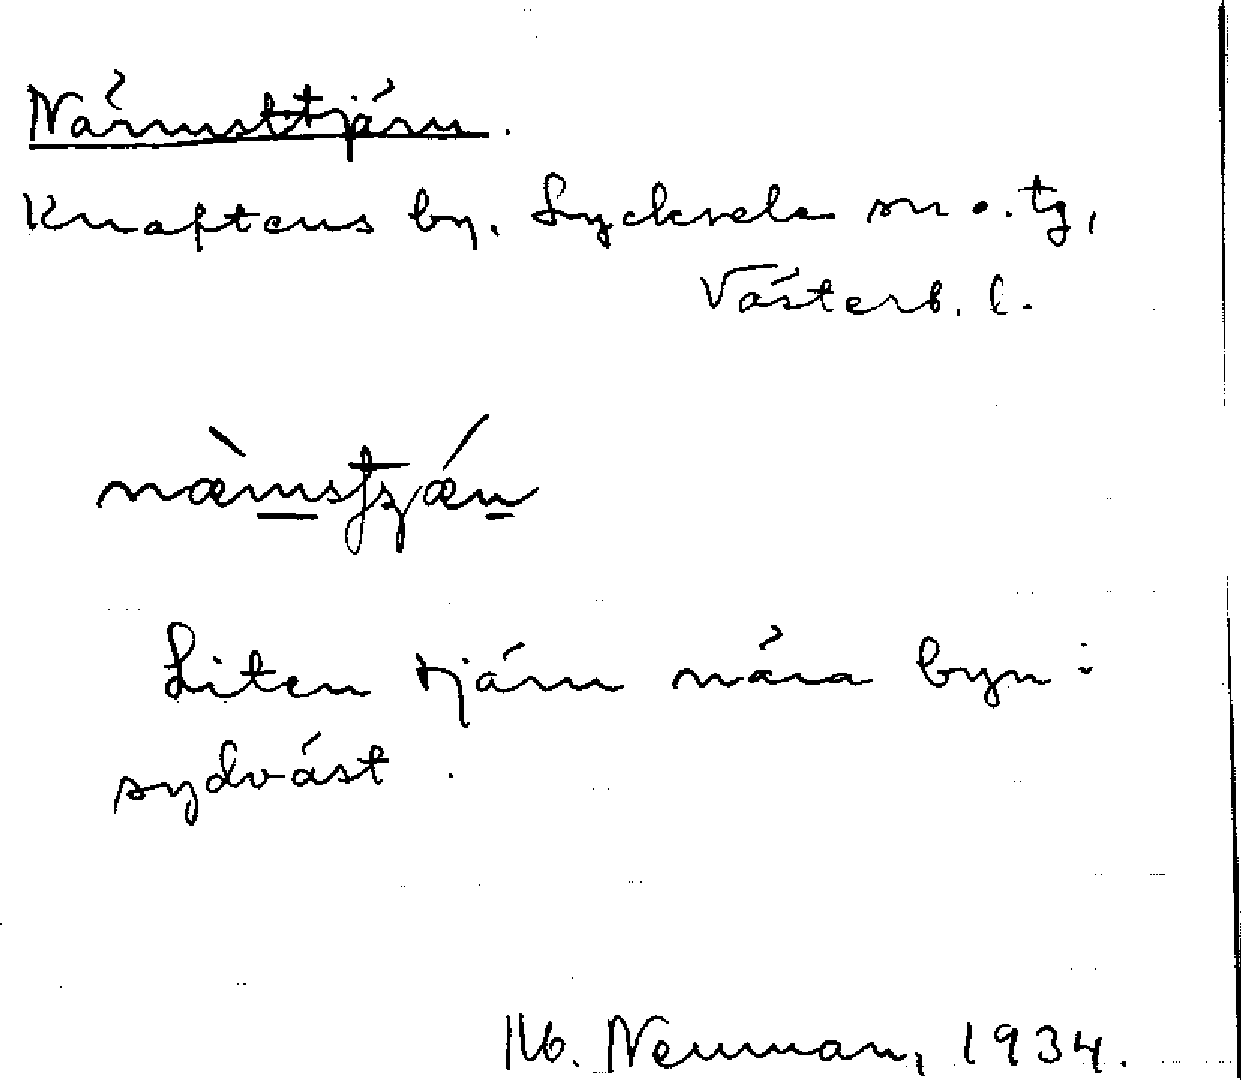 Närmsttjärn.
Knaftens by. Lycksele sn o. tg,
Västerb. l.
Liten tjärn nära byn i
sydväst.
Neuman, 1934.